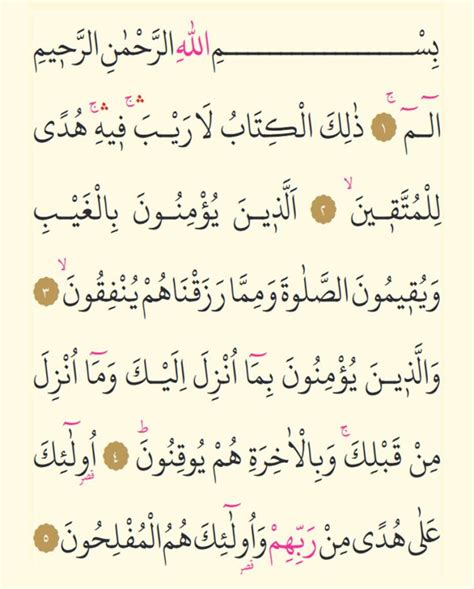 بِسْــــــــــــــــــمِ اللهِ الرَّحْمٰنِ الرَّحٖيمِ
الٓـمٓ ۚ ﴿١﴾ ذٰلِكَ الْكِتَابُ لَا رَيْبَ ۚۛ فٖيهِ ۚۛ هُدًى
لِلْمُتَّقٖينَ ۙ ﴿٢﴾ اَلَّذٖينَ يُؤْمِنُونَ بِالْغَيْبِ
وَيُقٖيمُونَ الصَّلٰوةَ وَمِمَّا رَزَقْنَاهُمْ يُنْفِقُونَ ۙ ﴿٣﴾
وَالَّذٖينَ يُؤْمِنُونَ بِمَٓا اُنْزِلَ اِلَيْكَ وَمَٓا اُنْزِلَ
مِنْ قَبْلِكَ ۚ وَبِالْاٰخِرَةِ هُمْ يُوقِنُونَ ؕ ﴿٤﴾ اُو۬لٰٓئِكَ قصر
عَلٰى هُدًى مِنْ رَبِّهِمْ وَاُو۬لٰٓئِكَ قصر هُمُ الْمُفْلِحُونَ ﴿٥﴾